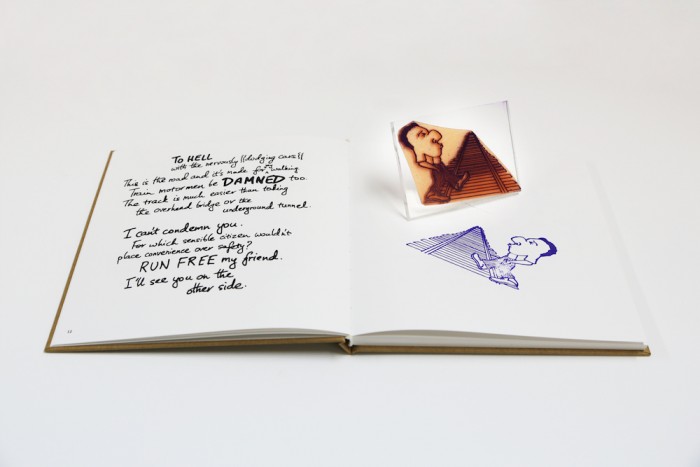 TO HELL
with the nervously ||dodging cars||
This is the road and it's made for walking
Train motormen be DAMNED too.
The track is much easier than taking
the overhead bridge or the
underground tunnel.
I can't condemn you.
For which sensible citizen wouldn't
place convenience over safety?
RUN FREE my friend.
I'll see you on the
other side.